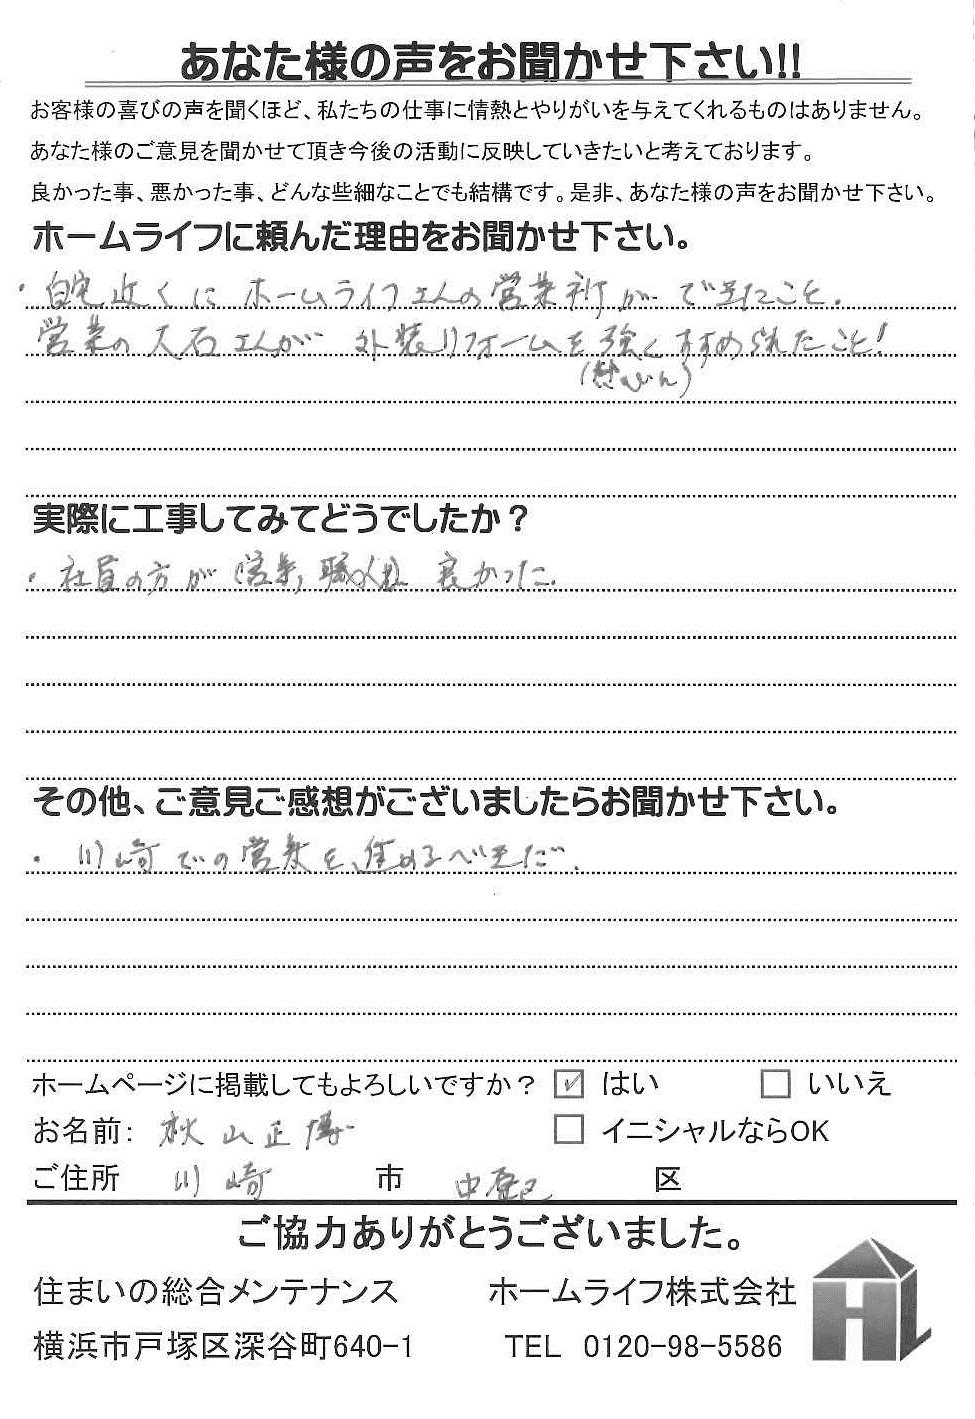 あなた様の声をお聞かせ下さい!!
お客様の喜びの声を聞くほど、私たちの仕事に情熱とやりがいを与えてくれるものはありません。
あなた様のご意見を聞かせて頂き今後の活動に反映していきたいと考えております。
良かった事、悪かった事、どんな些細なことでも結構です。是非、あなた様の声をお聞かせ下さい。
ホームライフに頼んだ理由をお聞かせ下さい。
・自宅近くにホームライフさんの営業所ができたこと.
営業の大石さんが 外装リフォームを強くすすめられたこと!
実際に工事してみてどうでしたか？
・社員の方が (営業,職人) 良かった.
その他、ご意見ご感想がございましたらお聞かせ下さい。
・川崎での営業を、進めるべきだ.
ホームページに掲載してもよろしいですか？ ☑ はい □ いいえ
お名前: 秋山正博 □ イニシャルならOK
ご住所 川崎 市 中原区 区
ご協力ありがとうございました。
住まいの総合メンテナンス ホームライフ株式会社
横浜市戸塚区深谷町640-1 TEL 0120-98-5586
HL